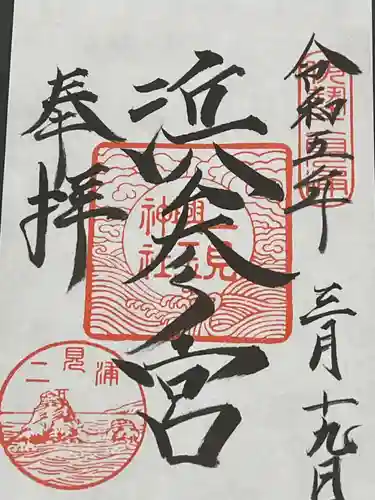 令和五年
三月十九日
浜参宮
二見
興玉
神社
奉拝
二見浦